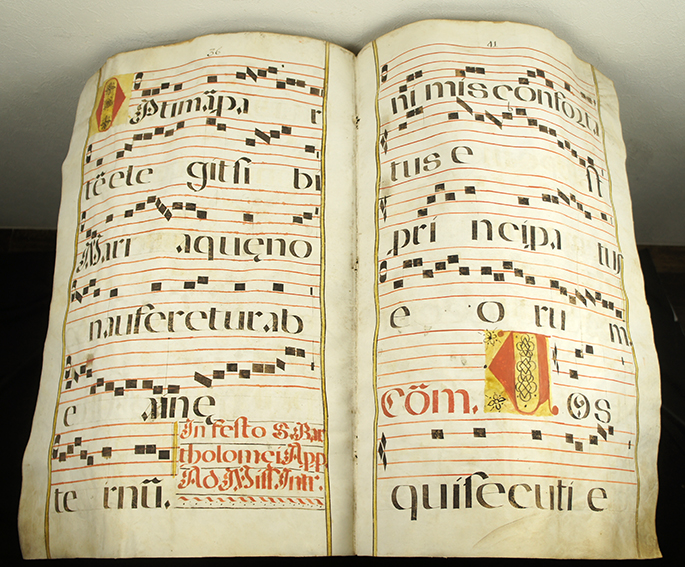 36
Optimāpa r
tēele gitsi bi
Mari aquęno
naufereturab
e ainę
te rnū.
In festo S. Bar
tholomei App.
Ad Miss. Intr.
41
ni mis conforta
tus e st
pri ncipa tus
e o ru m.
Cōm. Vos
quisecuti e